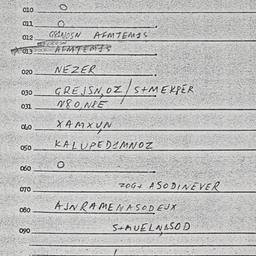 010 O
011 O
012 GRENOSN AFMTEMIS
013 AFMTEMIS
020 NEZER
030 GREJSN,OZ/S+MEKPER
031 N80,N8E
040 XAMXUN
050 KALUPEDIMNOZ
060 O
070 ZOG+ ASODINEVER
080 AJNRAMENASODEUX
090 S+AUELN,SOD